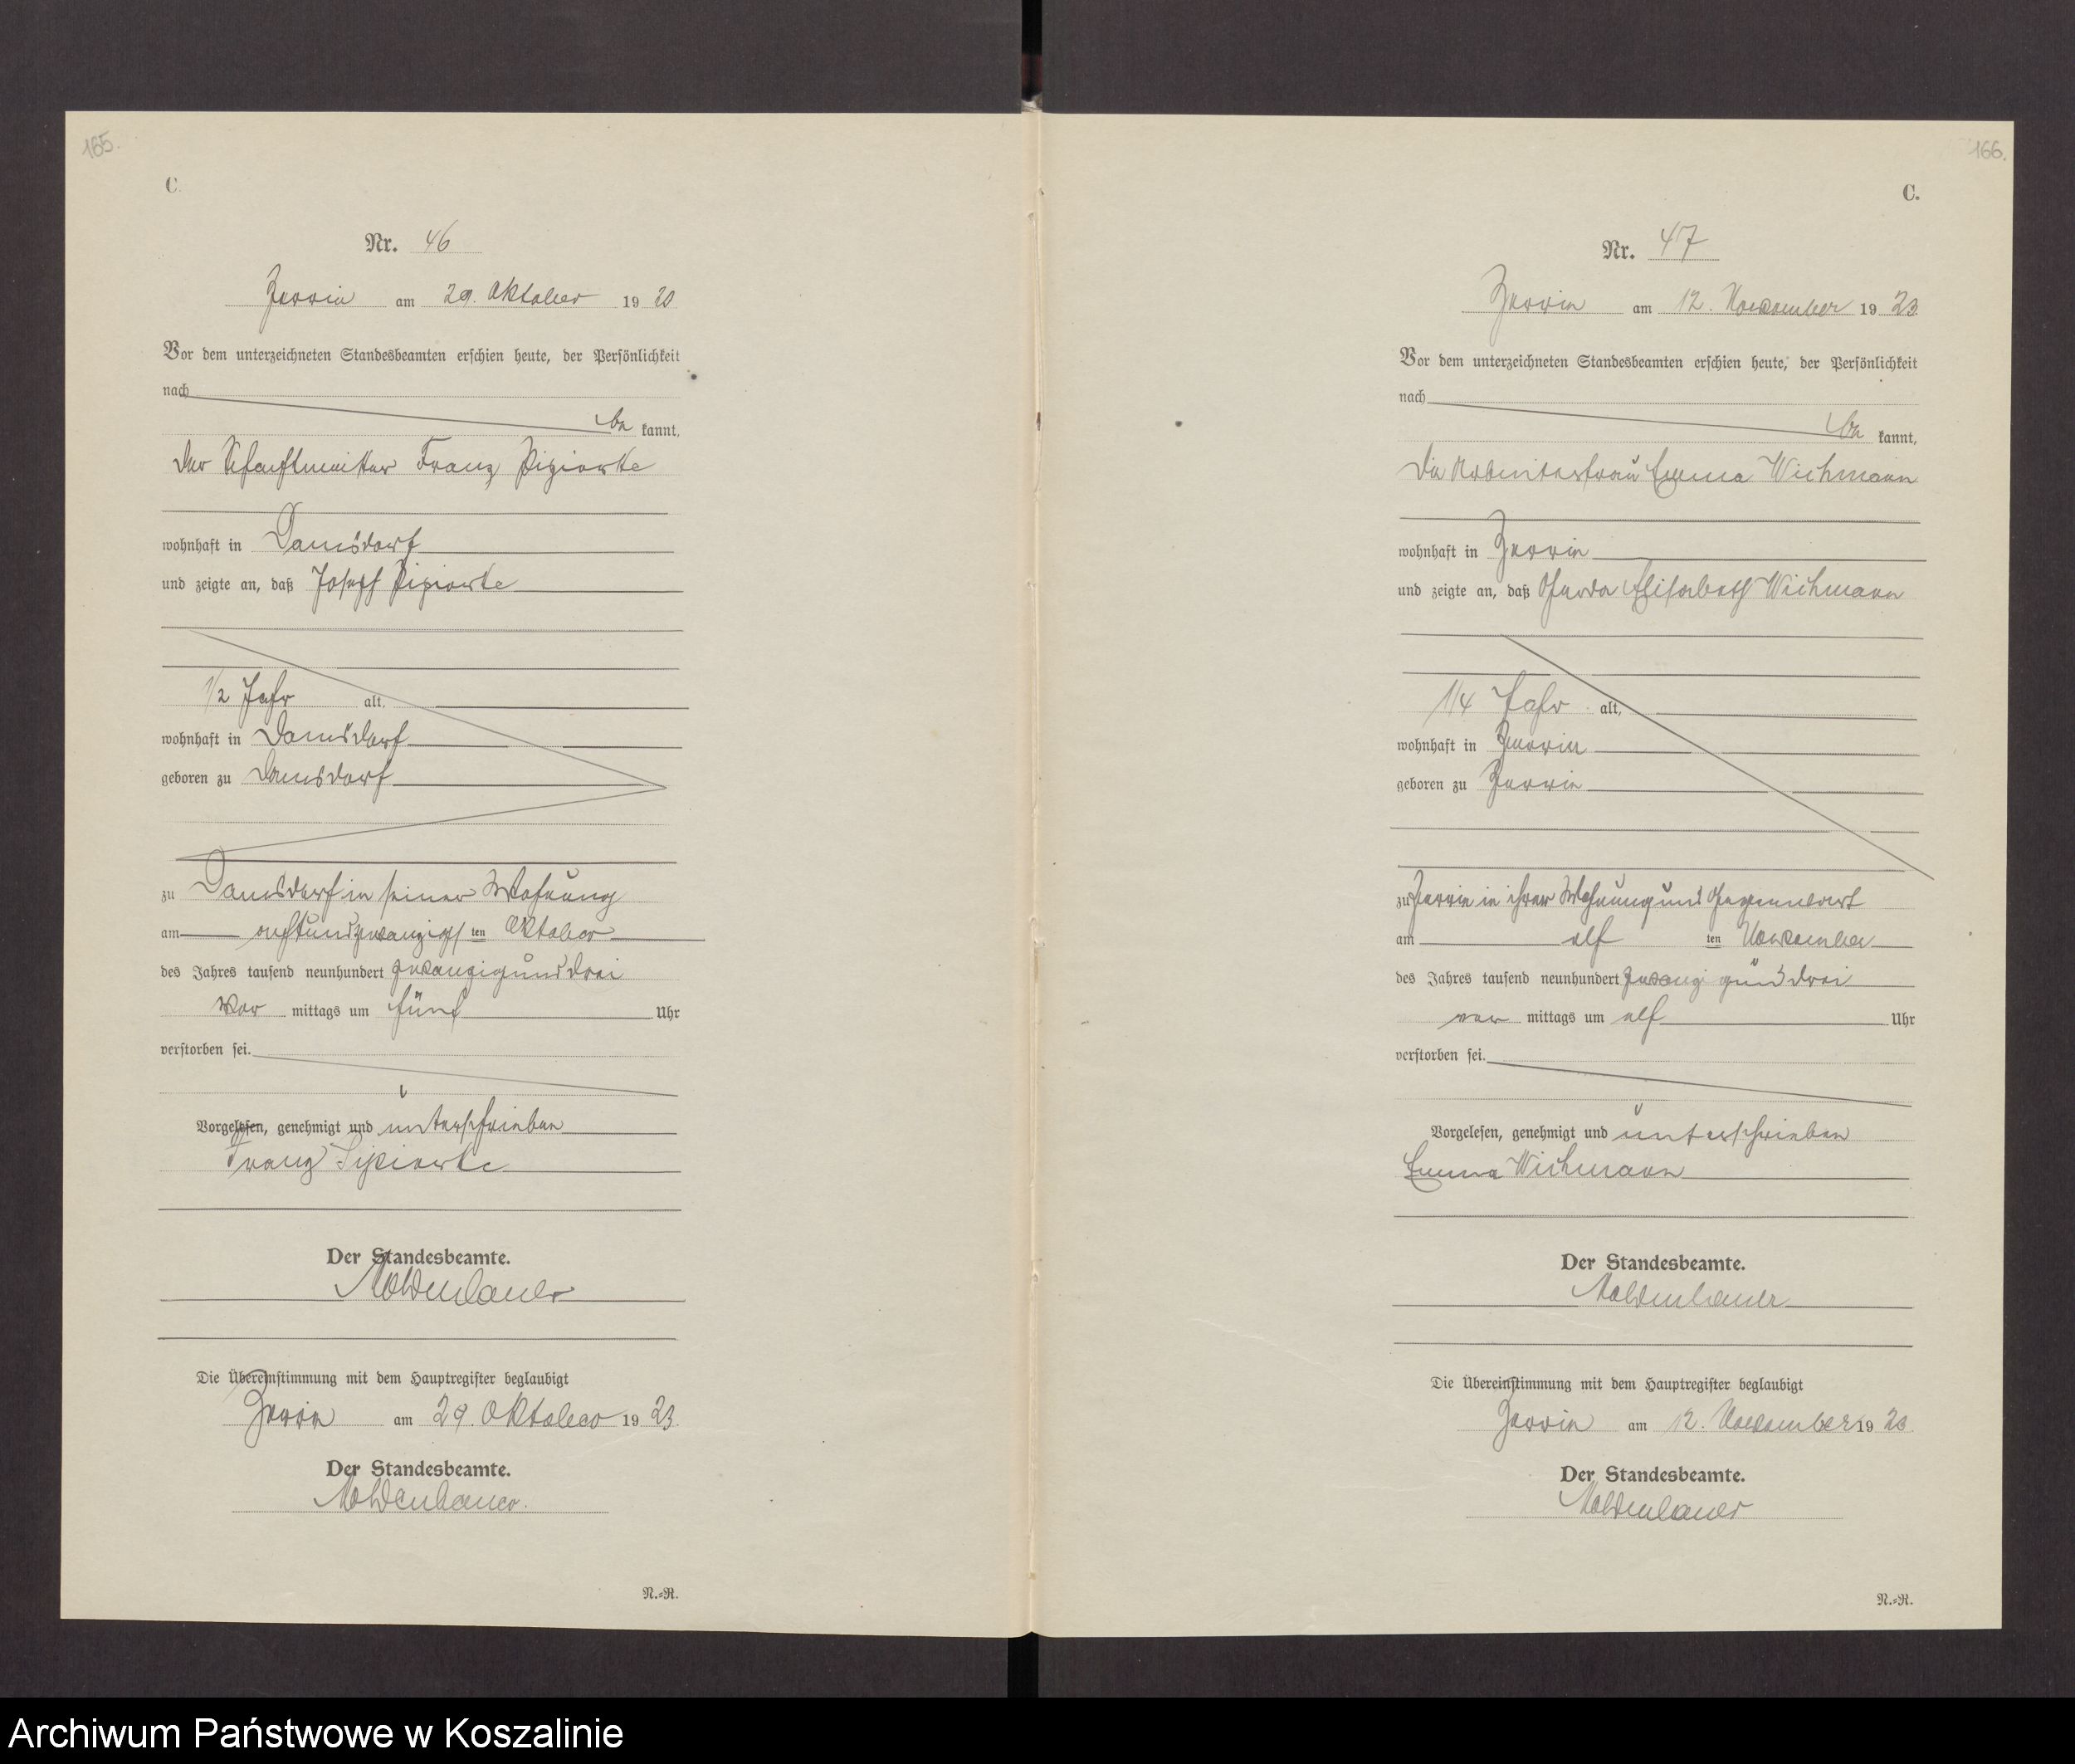 165.
C.
Nr. 46
Zerrin am 29. Oktober 19 23
Vor dem unterzeichneten Standesbeamten erschien heute, der Persönlichkeit
nach
be kannt,
der Schachtmeister Franz
wohnhaft in Damsdorf
und zeigte an, daß Joseph
1/2 Jahr alt,
wohnhaft in Damsdorf
geboren zu Damsdorf
zu Damsdorf in seiner Wohnung
am achtundzwanzigsten Oktober
des Jahres tausend neunhundert zwanzigunddrei
Vor mittags um fünf Uhr
verstorben sei.
Vorgelesen, genehmigt und unterschrieben
Franz
Der Standesbeamte.
Moldenhauer
Die Übereinstimmung mit dem Hauptregister beglaubigt
Zerrin am 29. Oktober 19 23
Der Standesbeamte.
Moldenhauer.
N.=R.
166.
C.
Nr. 47
Zerrin am 12. November 19 23
Vor dem unterzeichneten Standesbeamten erschien heute, der Persönlichkeit
nach
be kannt,
die Arbeiterfrau Emma Wichmann
wohnhaft in Zerrin
und zeigte an, daß Gerda Elisabeth Wichmann
1/4 Jahr alt,
wohnhaft in Zerrin
geboren zu Zerrin
zu Zerrin in ihrer Wohnung und Gegenwart
am elf ten November
des Jahres tausend neunhundert zwanzigunddrei
vor mittags um elf Uhr
verstorben sei.
Vorgelesen, genehmigt und unterschrieben
Emma Wichmann
Der Standesbeamte.
Moldenhauer
Die Übereinstimmung mit dem Hauptregister beglaubigt
Zerrin am 12. November 19 23
Der Standesbeamte.
Moldenhauer
N.=R.
Archiwum Państwowe w Koszalinie